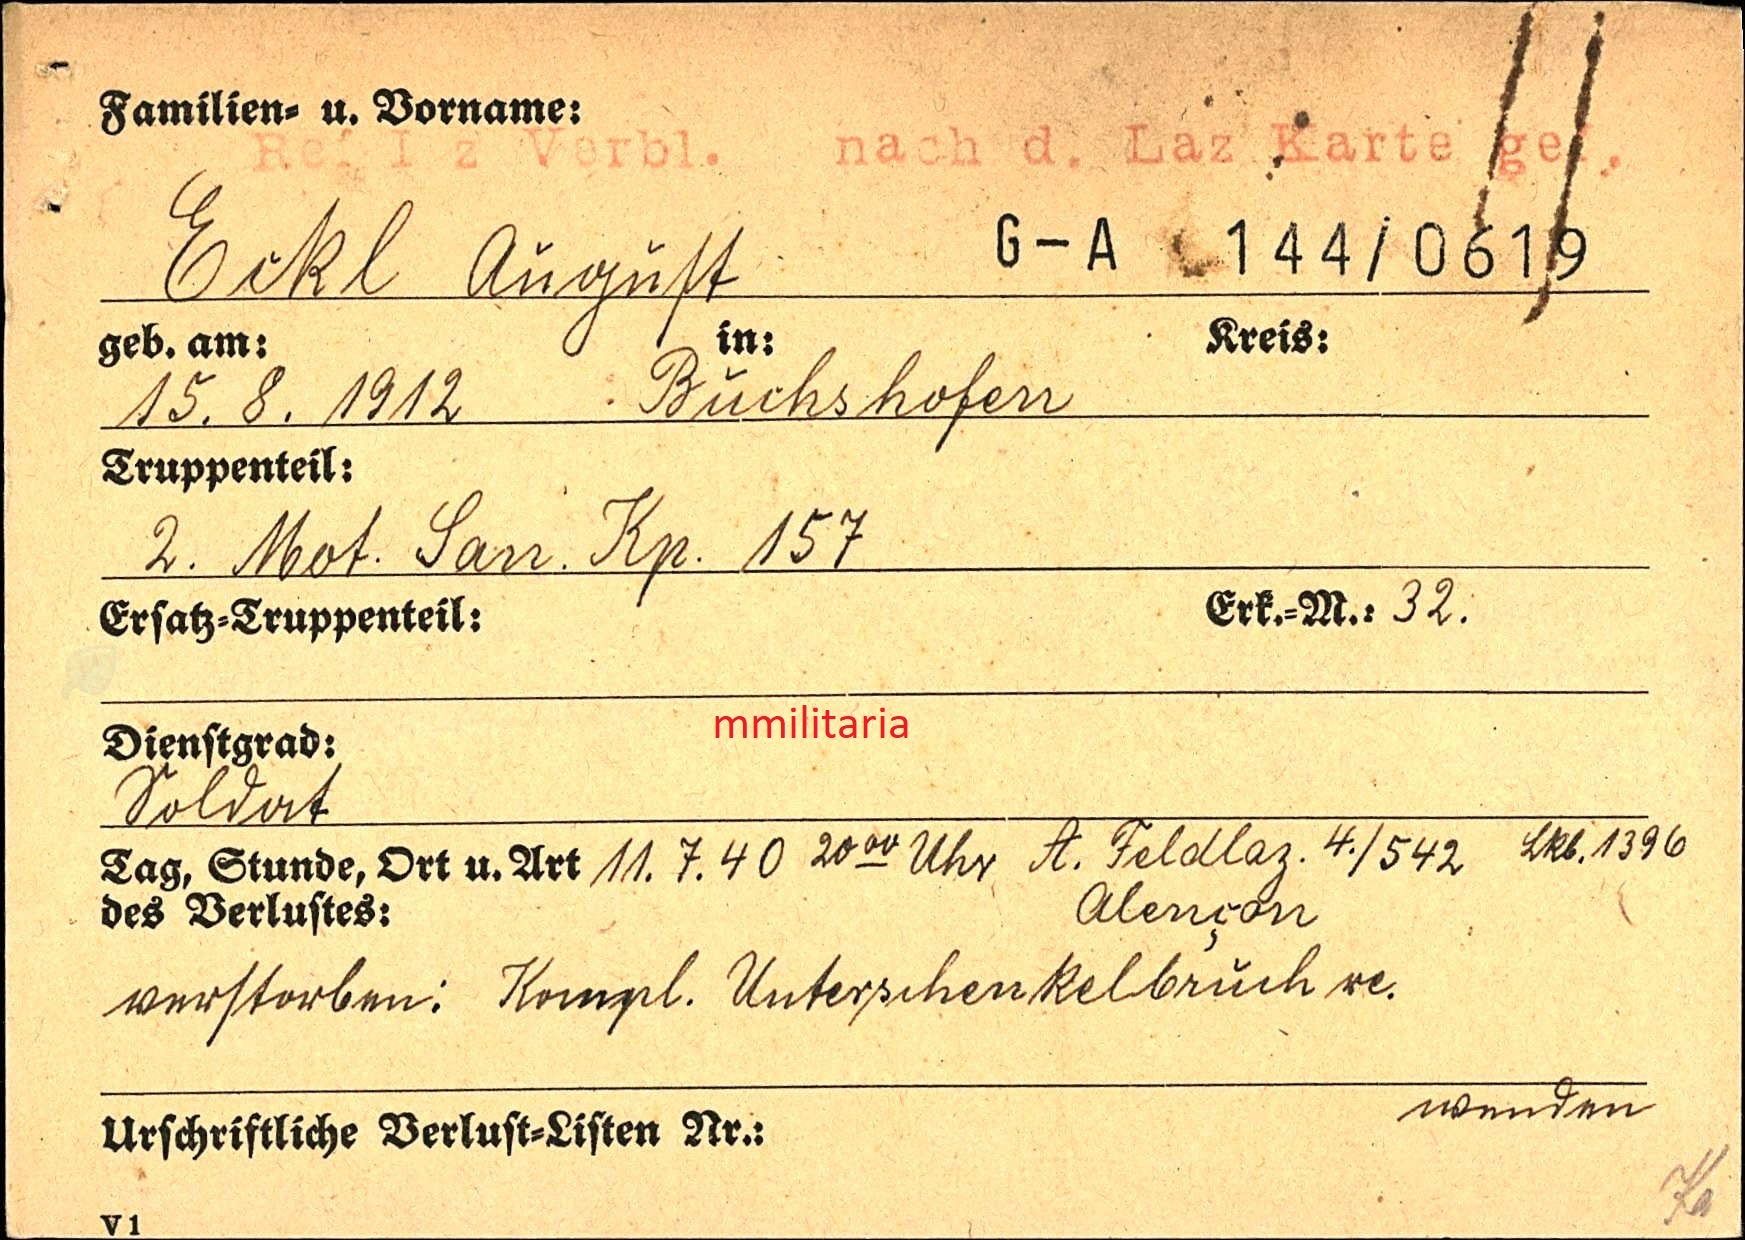 Familien- u. Vorname:
Ref I z Verbl. nach d. Laz Karte gef.
Eckl August G-A 144/0619
geb. am: in: Kreis:
15. 8. 1912 Buchshofen
Truppenteil:
2. Mot. San. Kp. 157
Ersatz-Truppenteil: Erk.-M.: 32.
mmilitaria
Dienstgrad:
Soldat
Tag, Stunde, Ort u. Art 11. 7. 40 20 00 Uhr A. Feldlaz. 4./542 Lkb. 1396
des Verlustes: Alençon
verstorben: Kompl. Unterschenkelbruch re.
wenden
Urschriftliche Verlust-Listen Nr.:
V 1